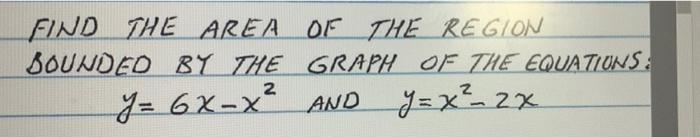 FIND THE AREA OF THE REGION
BOUNDED BY THE GRAPH OF THE EQUATIONS:
y = 6x - x² AND y = x² - 2x